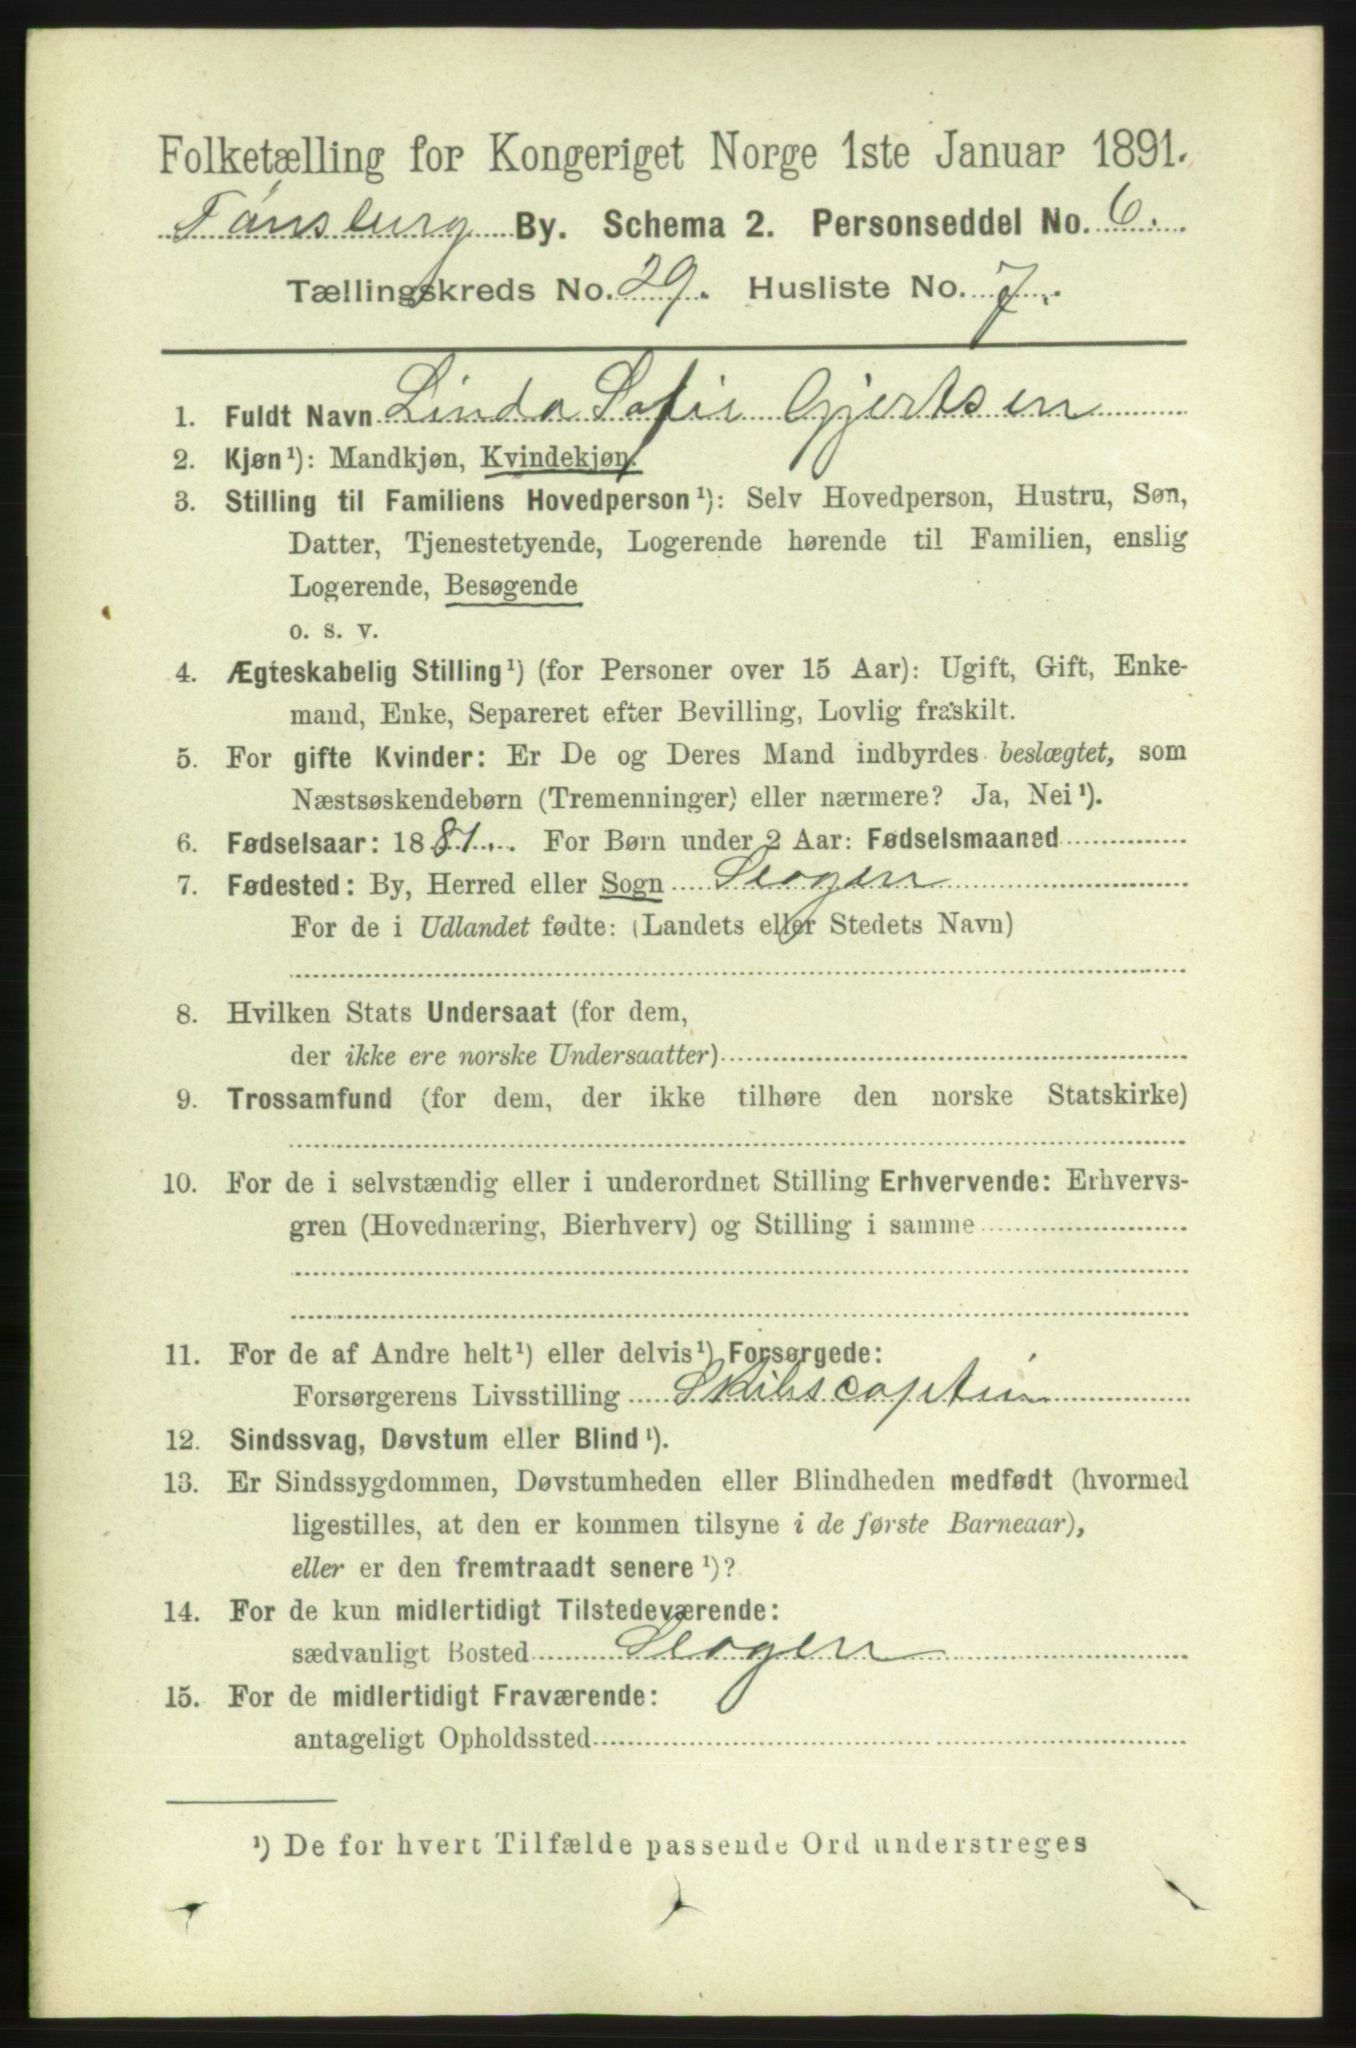 Folketælling for Kongeriget Norge 1ste Januar 1891.
Tønsberg By. Schema 2. Personseddel No. 6.
Tællingskreds No. 29. Husliste No. 7.
1. Fuldt Navn Linda Sofie Gjertsen
2. Kjøn¹): Mandkjøn, Kvindekjøn.
3. Stilling til Familiens Hovedperson¹): Selv Hovedperson, Hustru, Søn,
Datter, Tjenestetyende, Logerende hørende til Familien, enslig
Logerende, Besøgende
o. s. v.
4. Ægteskabelig Stilling¹) (for Personer over 15 Aar): Ugift, Gift, Enke-
mand, Enke, Separeret efter Bevilling, Lovlig fraskilt.
5. For gifte Kvinder: Er De og Deres Mand indbyrdes beslægtet, som
Næstsøskendebørn (Tremenninger) eller nærmere? Ja, Nei¹).
6. Fødselsaar: 1881. For Børn under 2 Aar: Fødselsmaaned
7. Fødested: By, Herred eller Sogn Slagen
For de i Udlandet fødte: (Landets eller Stedets Navn)
8. Hvilken Stats Undersaat (for dem,
der ikke ere norske Undersaatter)
9. Trossamfund (for dem, der ikke tilhøre den norske Statskirke)
10. For de i selvstændig eller i underordnet Stilling Erhvervende: Erhvervs-
gren (Hovednæring, Bierhverv) og Stilling i samme
11. For de af Andre helt¹) eller delvis¹) Forsørgede:
Forsørgerens Livsstilling Skibscaptein
12. Sindssvag, Døvstum eller Blind¹).
13. Er Sindssygdommen, Døvstumheden eller Blindheden medfødt (hvormed
ligestilles, at den er kommen tilsyne i de første Barneaar),
eller er den fremtraadt senere¹)?
14. For de kun midlertidigt Tilstedeværende:
sædvanligt Bosted Slagen
15. For de midlertidigt Fraværende:
antageligt Opholdssted
¹) De for hvert Tilfælde passende Ord understreges